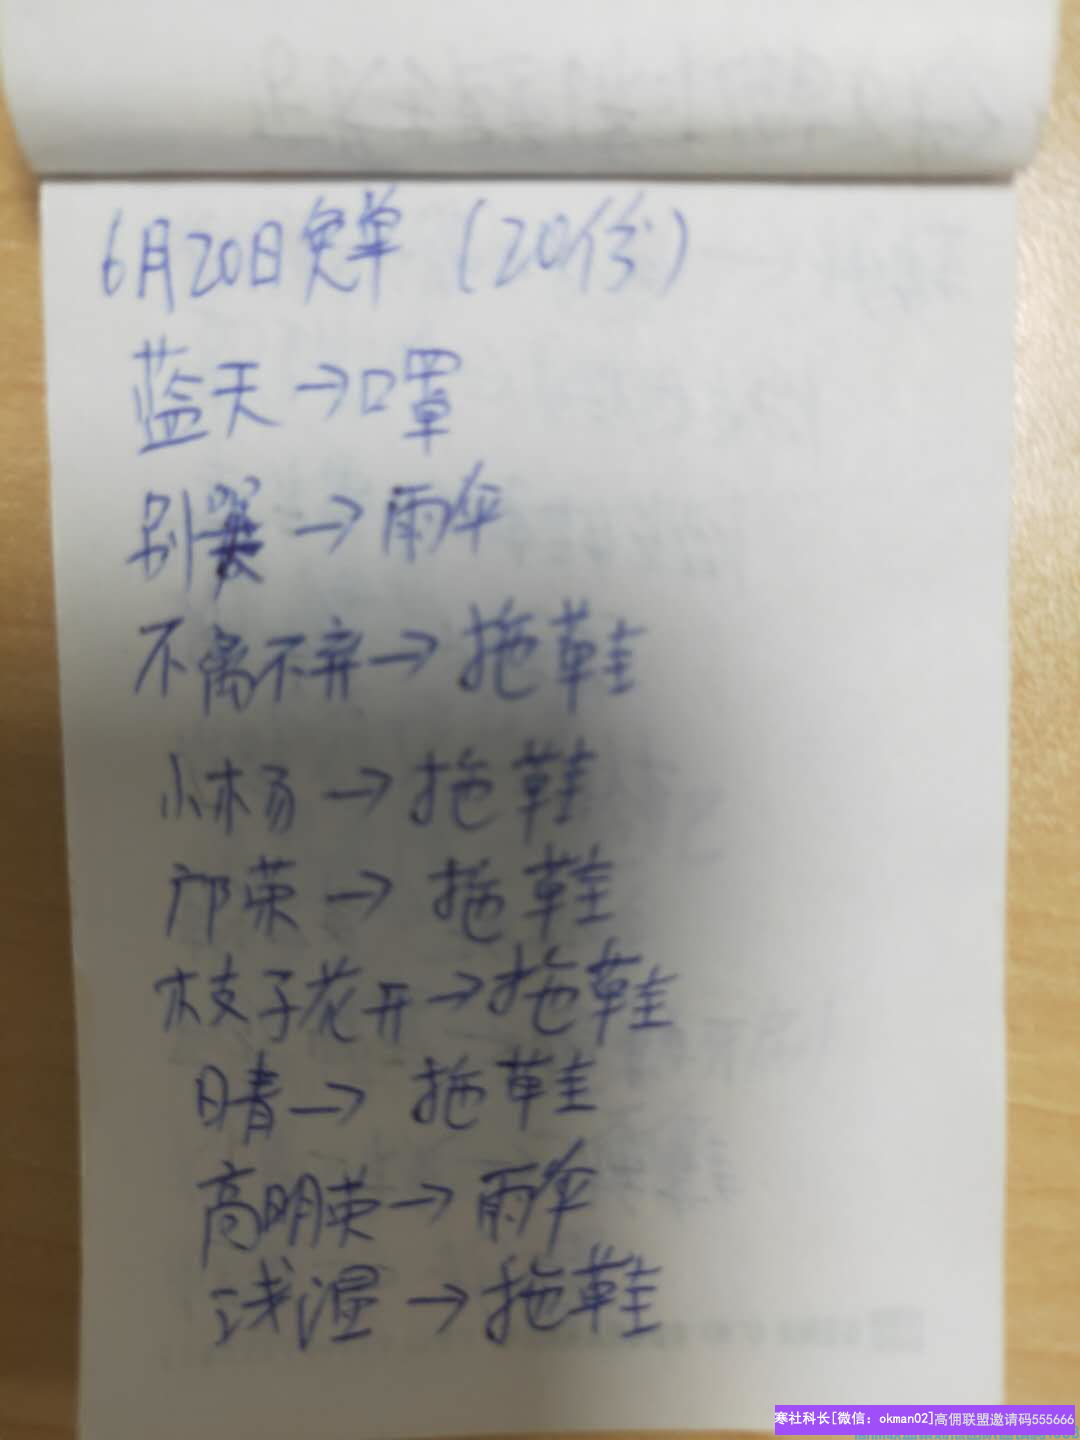 6月20日免单（20份）
蓝天→口罩
别→雨伞
不离不弃→拖鞋
小杨→拖鞋
邝荣→拖鞋
枝子花开→拖鞋
晴→拖鞋
高明英→雨伞
浅湿→拖鞋
寒社科长[微信：okman02]高佣联盟邀请码555666